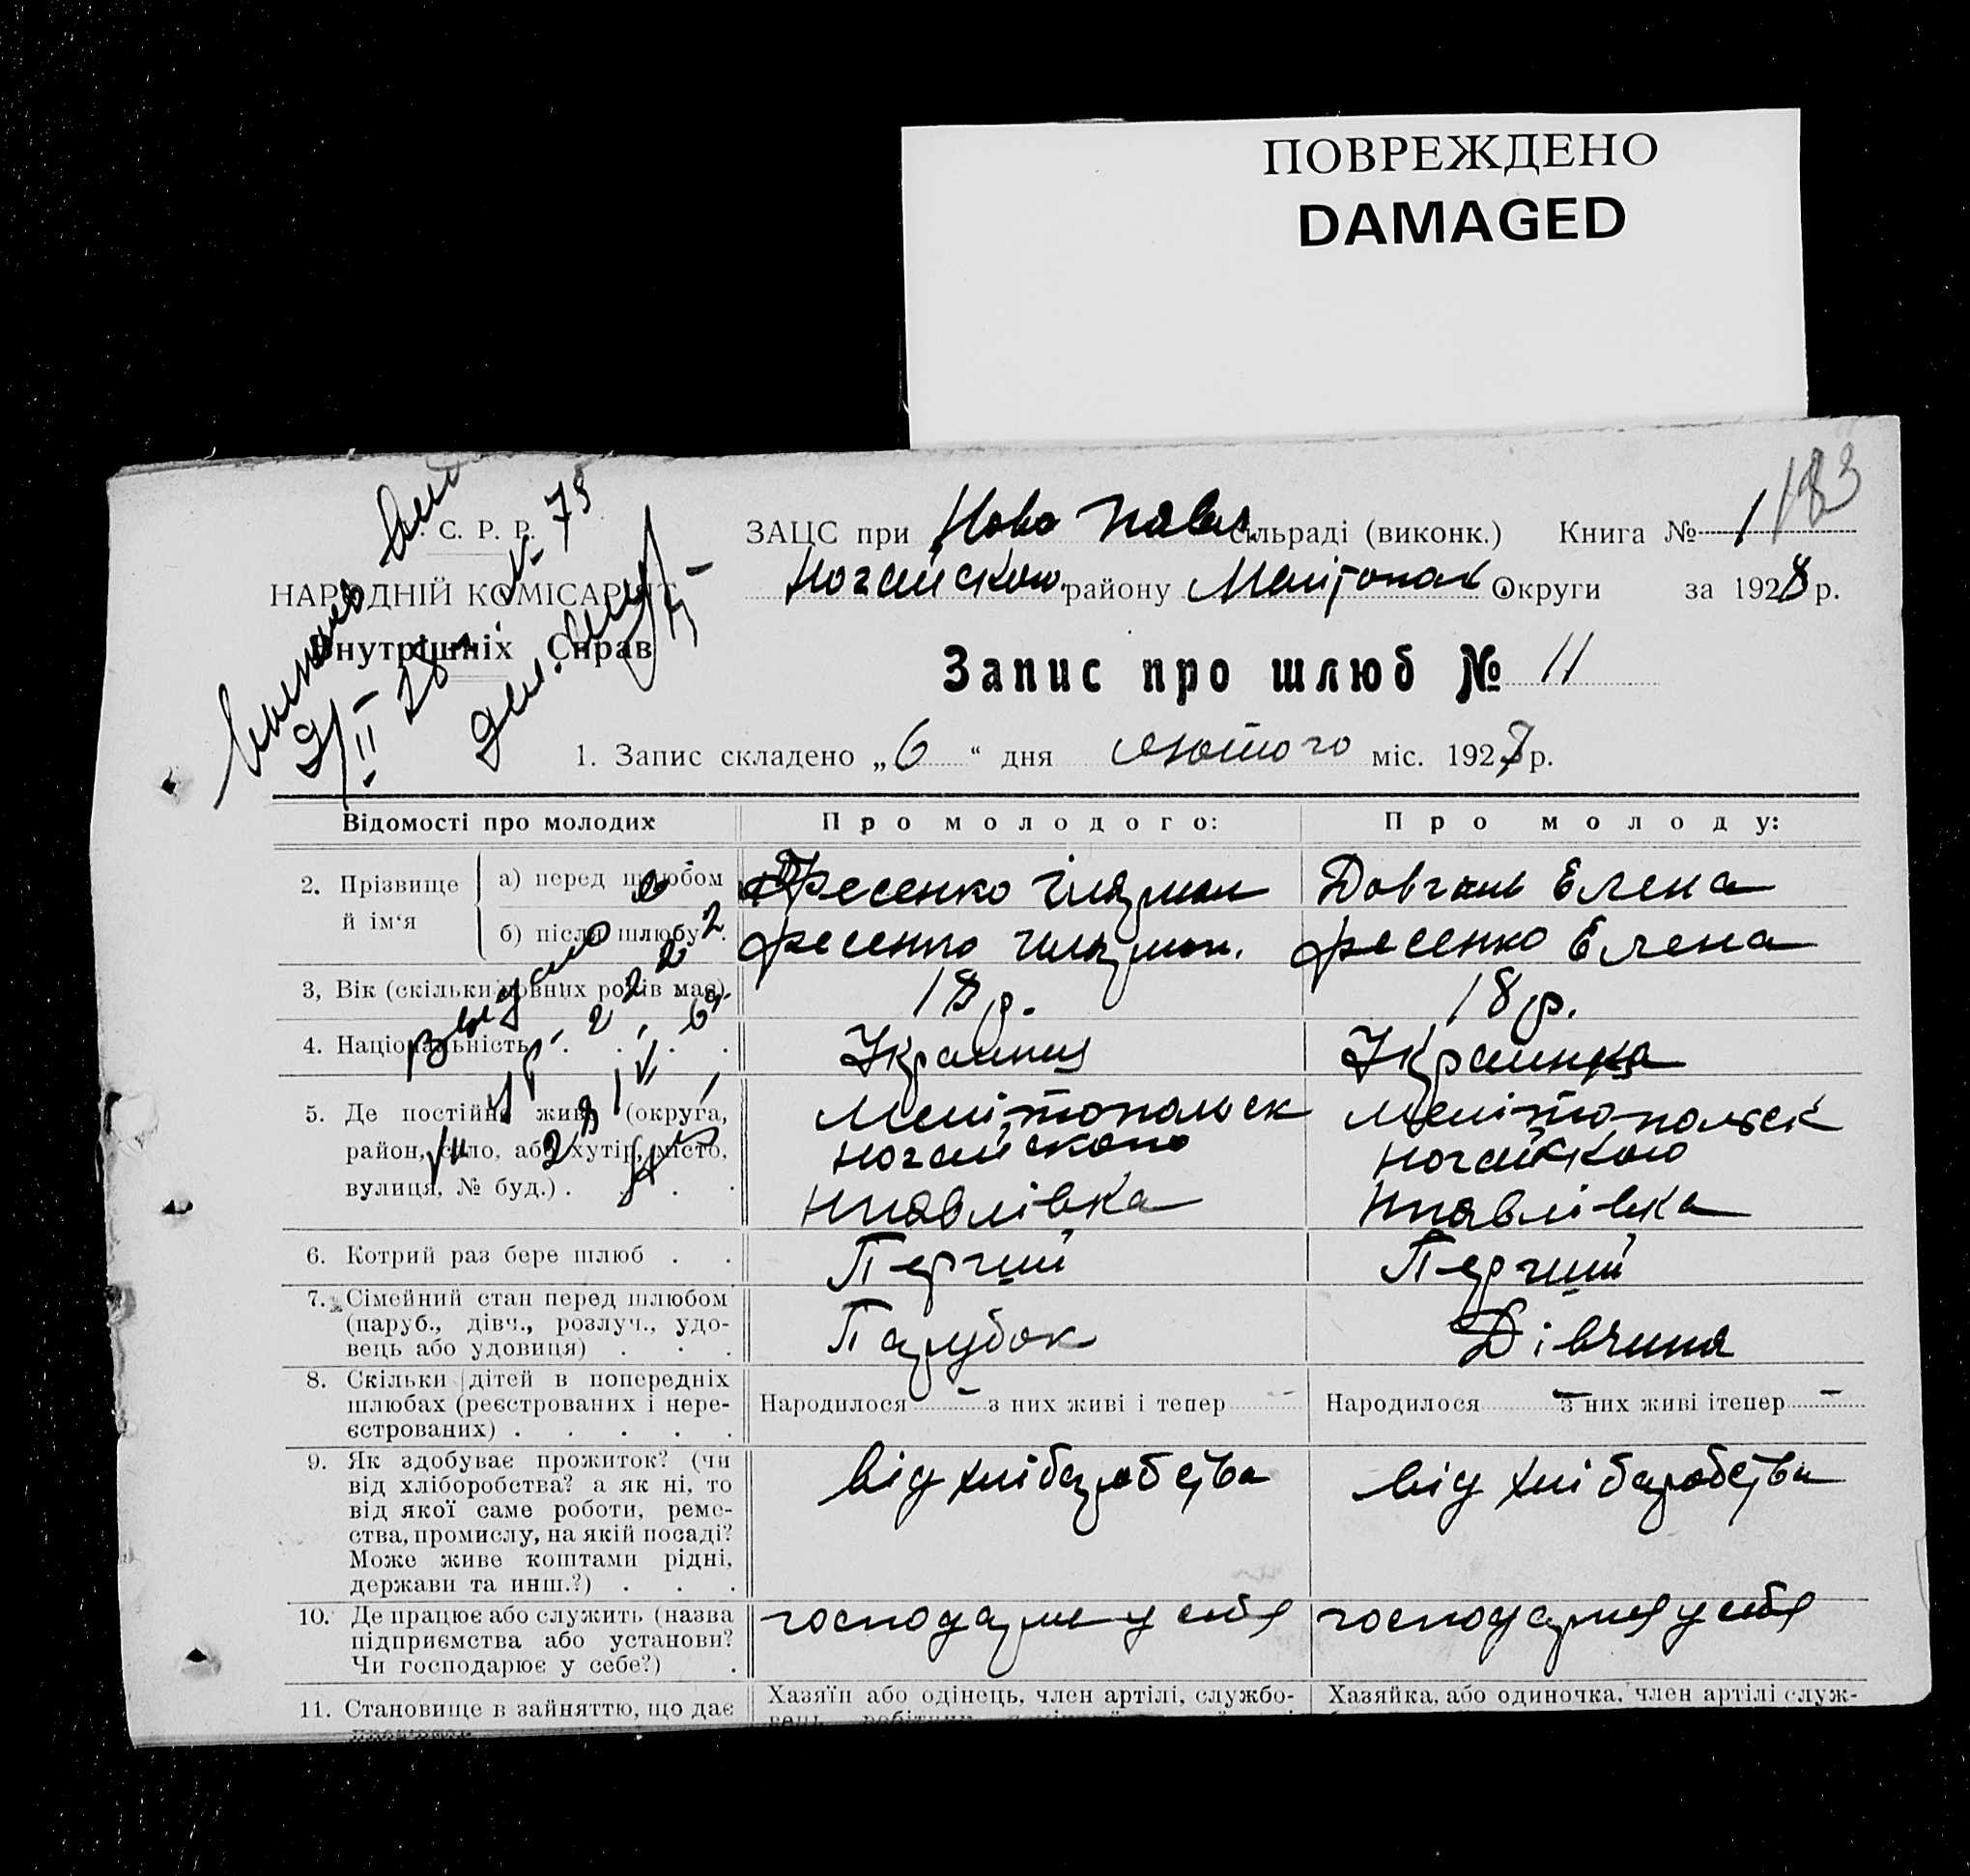 ПОВРЕЖДЕНО
DAMAGED
183
С. Р. Р.
НАРОДНІЙ КОМІСАРІЯТ
Внутрішніх Справ
75
ЗАЦС при Ново Павл. сільраді (виконк.) Книга № 1
Ногайского району Мелітопол Округи за 1928 р.
Запис про шлюб № 11
1. Запис складено „6“ дня лютого міс. 1928 р.
Відомості про молодих
Про молодого:
Про молоду:
2. Прізвище й ім‘я
а) перед шлюбом
Фесенко
Довгань Елена
б) після шлюбу
Фесенко
Фесенко Елена
3, Вік (скільки повних років має)
18 р.
18 р.
4. Національність
Украинка
5. Де постійно живе (округа,
район, село, або хутір, місто,
вулиця, № буд.)
Мелітопольск
Ногайского
Нпавлівка
Мелітопольск
Ногайского
Нпавлівка
6. Котрий раз бере шлюб
Перчий
Перчий
7. Сімейний стан перед шлюбом
(паруб., дівч., розлуч., удо-
вець або удовиця)
Парубок
Дівчина
8. Скільки дітей в попередніх
шлюбах (реєстрованих і нере-
єстрованих)
Народилося - з них живі і тепер -
Народилося - з них живі ітепер -
9. Як здобуває прожиток? (чи
від хліборобства? а як ні, то
від якої саме роботи, реме-
ства, промислу, на якій посаді?
Може живе коштами рідні,
держави та инш.?)
від хліборобства
від хліборобства
10. Де працює або служить (назва
підприємства або установи?
Чи господарює у себе?)
у себя
у себя
11. Становище в зайняттю, що дає
Хазяїн або одінець, член артілі, службо-
Хазяйка, або одиночка, член артілі служ-